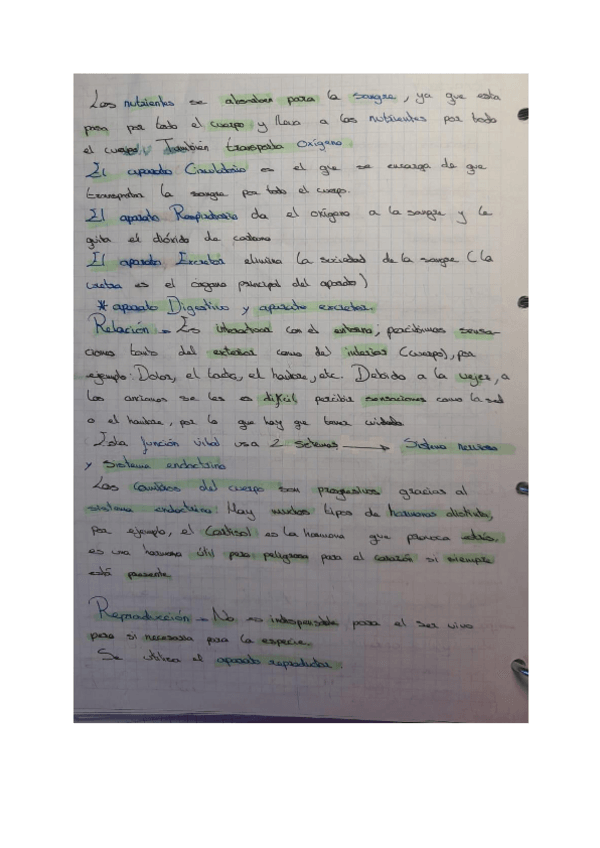 Los nutrientes se absorben para la sangre, ya que esta
pasa por todo el cuerpo y lleva a los nutrientes por todo
el cuerpo. También transporta oxígeno.
El aparato Circulatorio es el que se encarga de que
transportar la sangre por todo el cuerpo.
El aparato Respiratorio da el oxígeno a la sangre y le
quita el dióxido de carbono
El aparato Excretor elimina la suciedad de la sangre (la
es el órgano principal del aparato)
* aparato Digestivo y aparato excretor.
Relación - Es interactuar con el entorno, percibimos sensa-
ciones tanto del exterior como del interior (cuerpo), por
ejemplo: Dolor, el tacto, el hambre, etc. Debido a la vejez, a
los ancianos se les es difícil percibir sensaciones como la sed
o el hambre, por lo que hay que tener cuidado
Esta función vital usa 2 sistemas → Sistema nervioso
y sistema endocrino
Los cambios del cuerpo son progresivos gracias al
sistema endocrino. Hay muchos tipos de hormonas distintas,
por ejemplo, el Cortisol es la hormona que provoca estrés,
es una hormona útil pero peligrosa para el corazón si siempre
está presente
Reproducción - No es indispensable para el ser vivo
pero si necesaria para la especie.
Se utiliza el aparato reproductor.